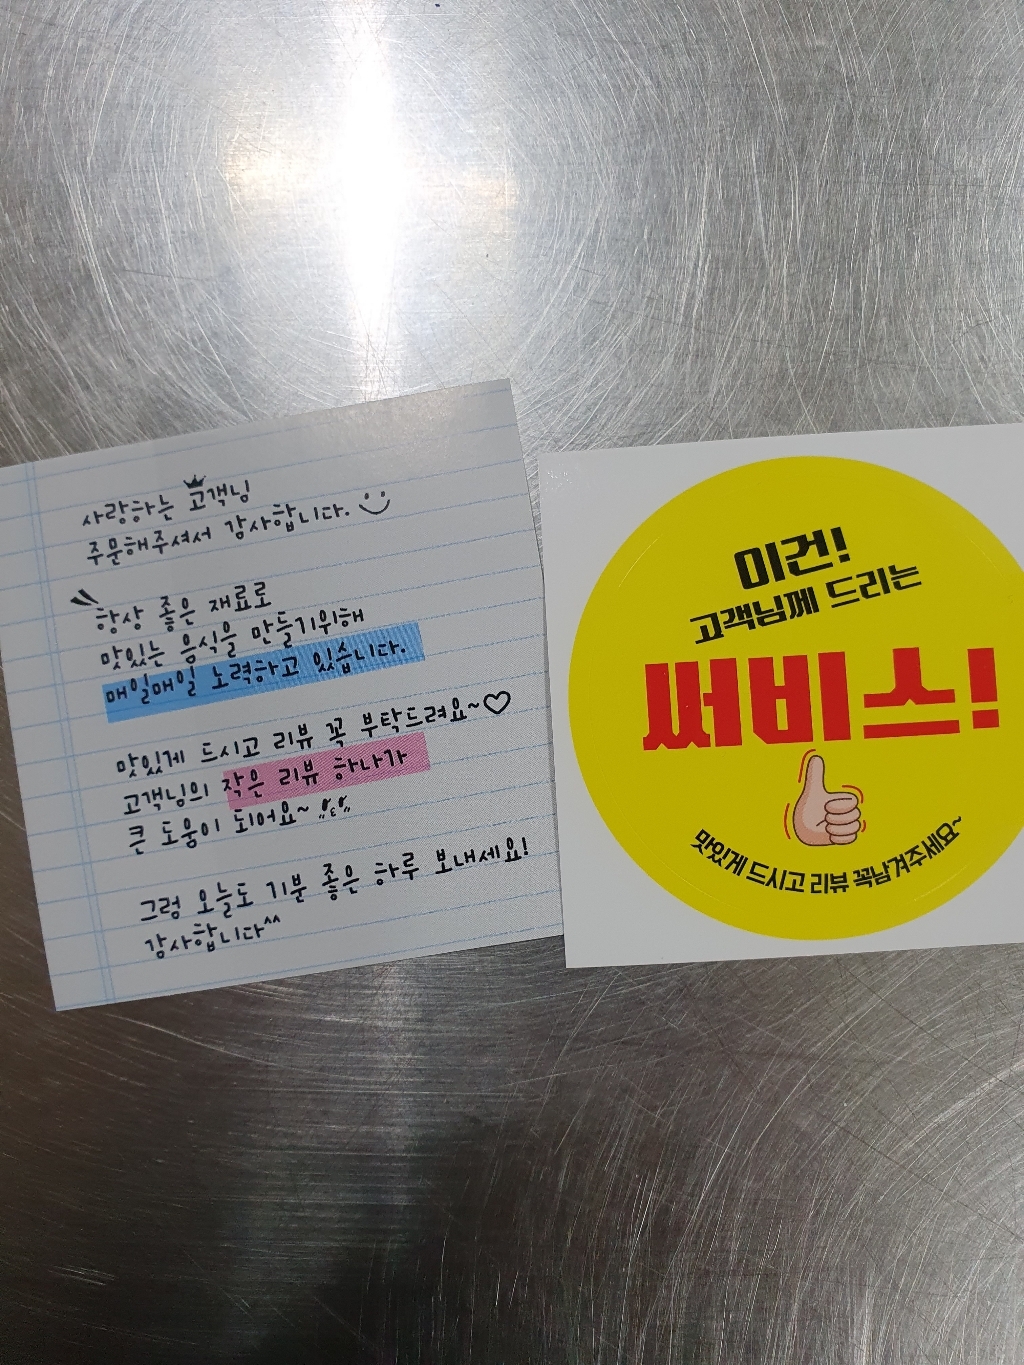 사랑하는 고객님
주문해주셔서 감사합니다.
항상 좋은 재료로
맛있는 음식을 만들기위해
매일매일 노력하고 있습니다.
맛있게 드시고 리뷰 꼭 부탁드려요~♡
고객님의 작은 리뷰 하나가
큰 도움이 되어요~
그럼 오늘도 기분 좋은 하루 보내세요!
감사합니다^^
이건!
고객님께 드리는
써비스!
맛있게 드시고 리뷰 꼭남겨주세요~